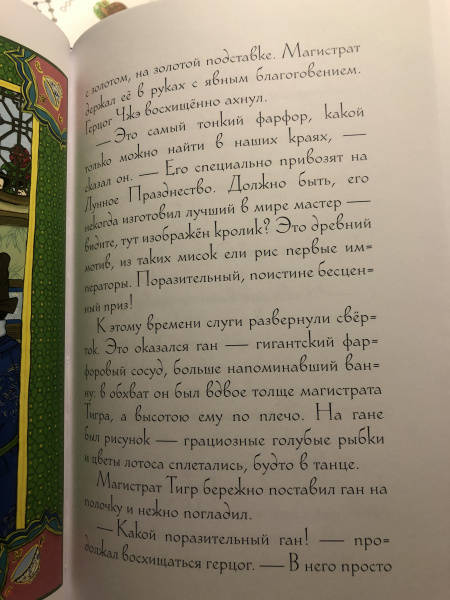 с золотом, на золотой подставке. Магистрат
держал её в руках с явным благоговением.
Герцог Чжэ восхищённо ахнул.
— Это самый тонкий фарфор, какой
только можно найти в наших краях, —
сказал он. — Его специально привозят на
Лунное Празднество. Должно быть, его
некогда изготовил лучший в мире мастер —
видите, тут изображён кролик? Это древний
мотив, из таких мисок ели рис первые им=
ператоры. Поразительный, поистине бесцен=
ный приз!
К этому времени слуги развернули свёр=
ток. Это оказался ган — гигантский фар=
форовый сосуд, больше напоминавший ван=
ну: в обхват он был вдвое толще магистрата
Тигра, а высотою ему по плечо. На гане
был рисунок — грациозные голубые рыбки
и цветы лотоса сплетались, будто в танце.
Магистрат Тигр бережно поставил ган на
полочку и нежно погладил.
— Какой поразительный ган! — про=
должал восхищаться герцог. — В него просто